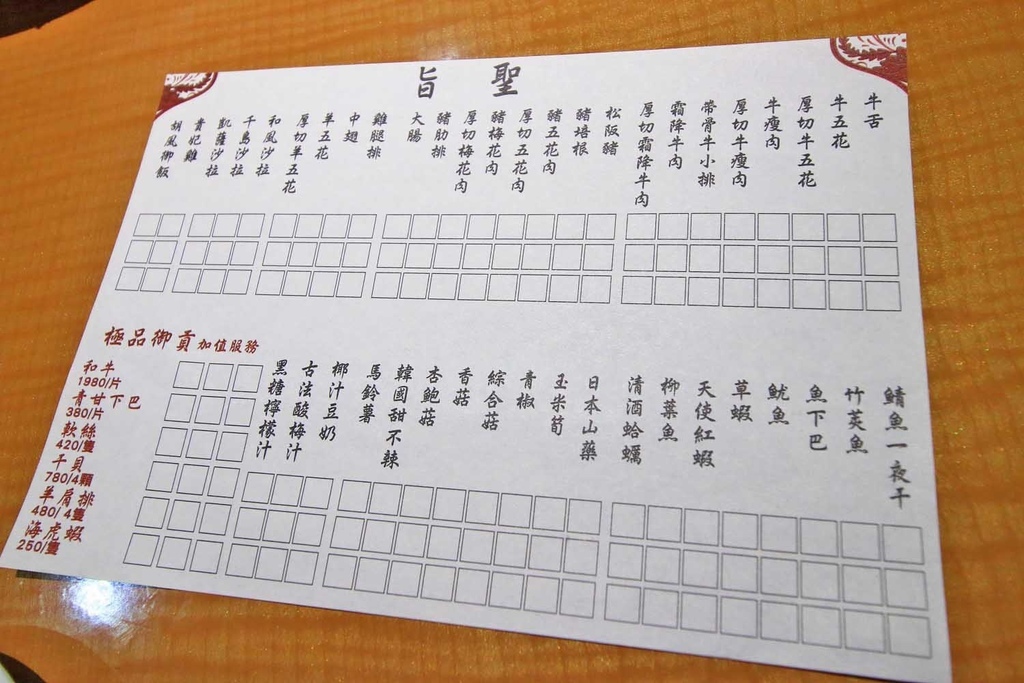 聖旨
牛舌
牛五花
厚切牛五花
牛瘦肉
厚切牛瘦肉
帶骨牛小排
霜降牛肉
厚切霜降牛肉
松阪豬
豬培根
豬五花肉
厚切五花肉
豬梅花肉
厚切梅花肉
豬肋排
大腸
雞腿排
中翅
羊五花
厚切羊五花
和風沙拉
千島沙拉
凱薩沙拉
貴妃雞
胡風御飯
鯖魚一夜干
竹莢魚
魚下巴
魷魚
草蝦
天使紅蝦
柳葉魚
清酒蛤蠣
日本山藥
玉米筍
青椒
綜合菇
香菇
杏鮑菇
韓國甜不辣
馬鈴薯
椰汁豆奶
古法酸梅汁
黑糖檸檬汁
極品御貢加值服務
和牛
1980/片
青甘下巴
380/片
軟絲
420/隻
干貝
780/4顆
羊肩排
480/4隻
海虎蝦
250/隻